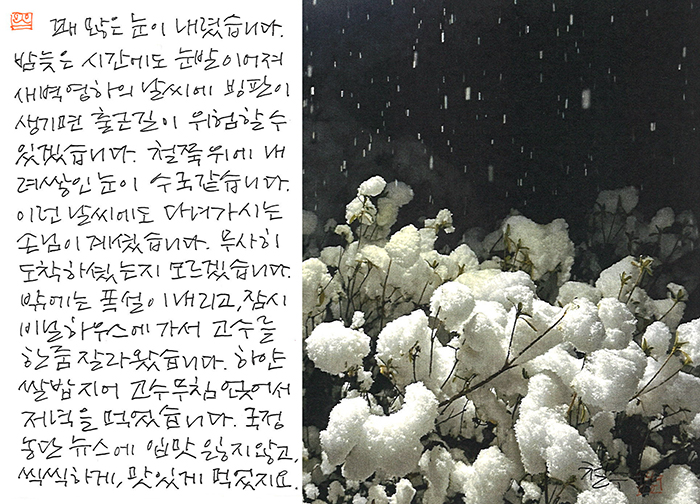 꽤 많은 눈이 내렸습니다.
밤늦은 시간에도 눈발이어져
새벽영하의 날씨에 빙판이
생기면 출근길이 위험할수
있겠습니다. 철쭉위에 내
려쌓인눈이 수국같습니다.
이런 날씨에도 다녀가시는
손님이 계셨습니다. 무사히
도착하셨는지 모르겠습니다.
밖에는 폭설이내리고, 잠시
비닐하우스에 가서 고수를
한줌 잘라왔습니다. 하얀
쌀밥지어 고수무침 얹어서
저녁을 먹었습니다. 국정
농단 뉴스에 입맛 잃지않고,
씩씩하게, 맛있게 먹었지요.
철수